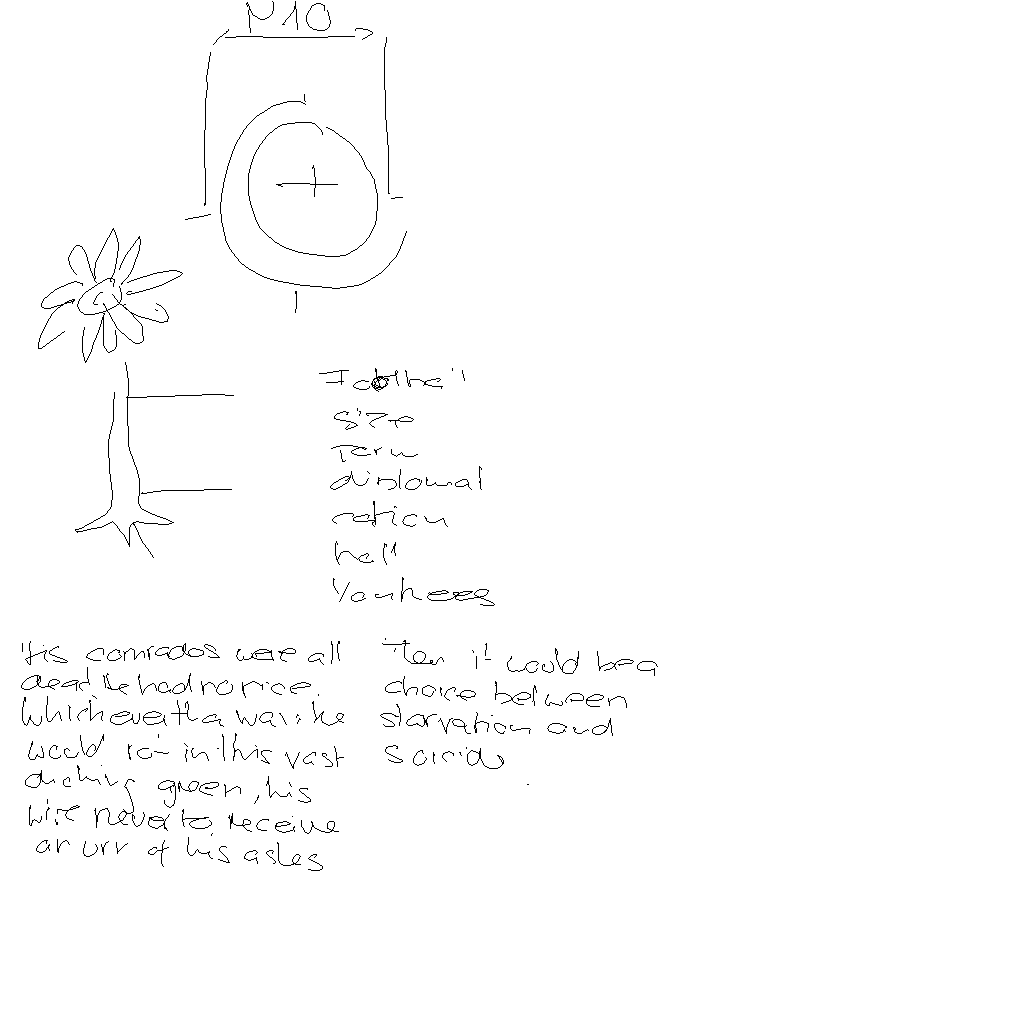 M10
Football
size
Term
diplomat
ration
hall
Yankees
His comrades were all
dead he had no rice.
Whichever the war, he
would rot in this vast
choking green, his
wife never to receive
an urn of his ashes
Then it would be a
choice between
starvation and
suicide